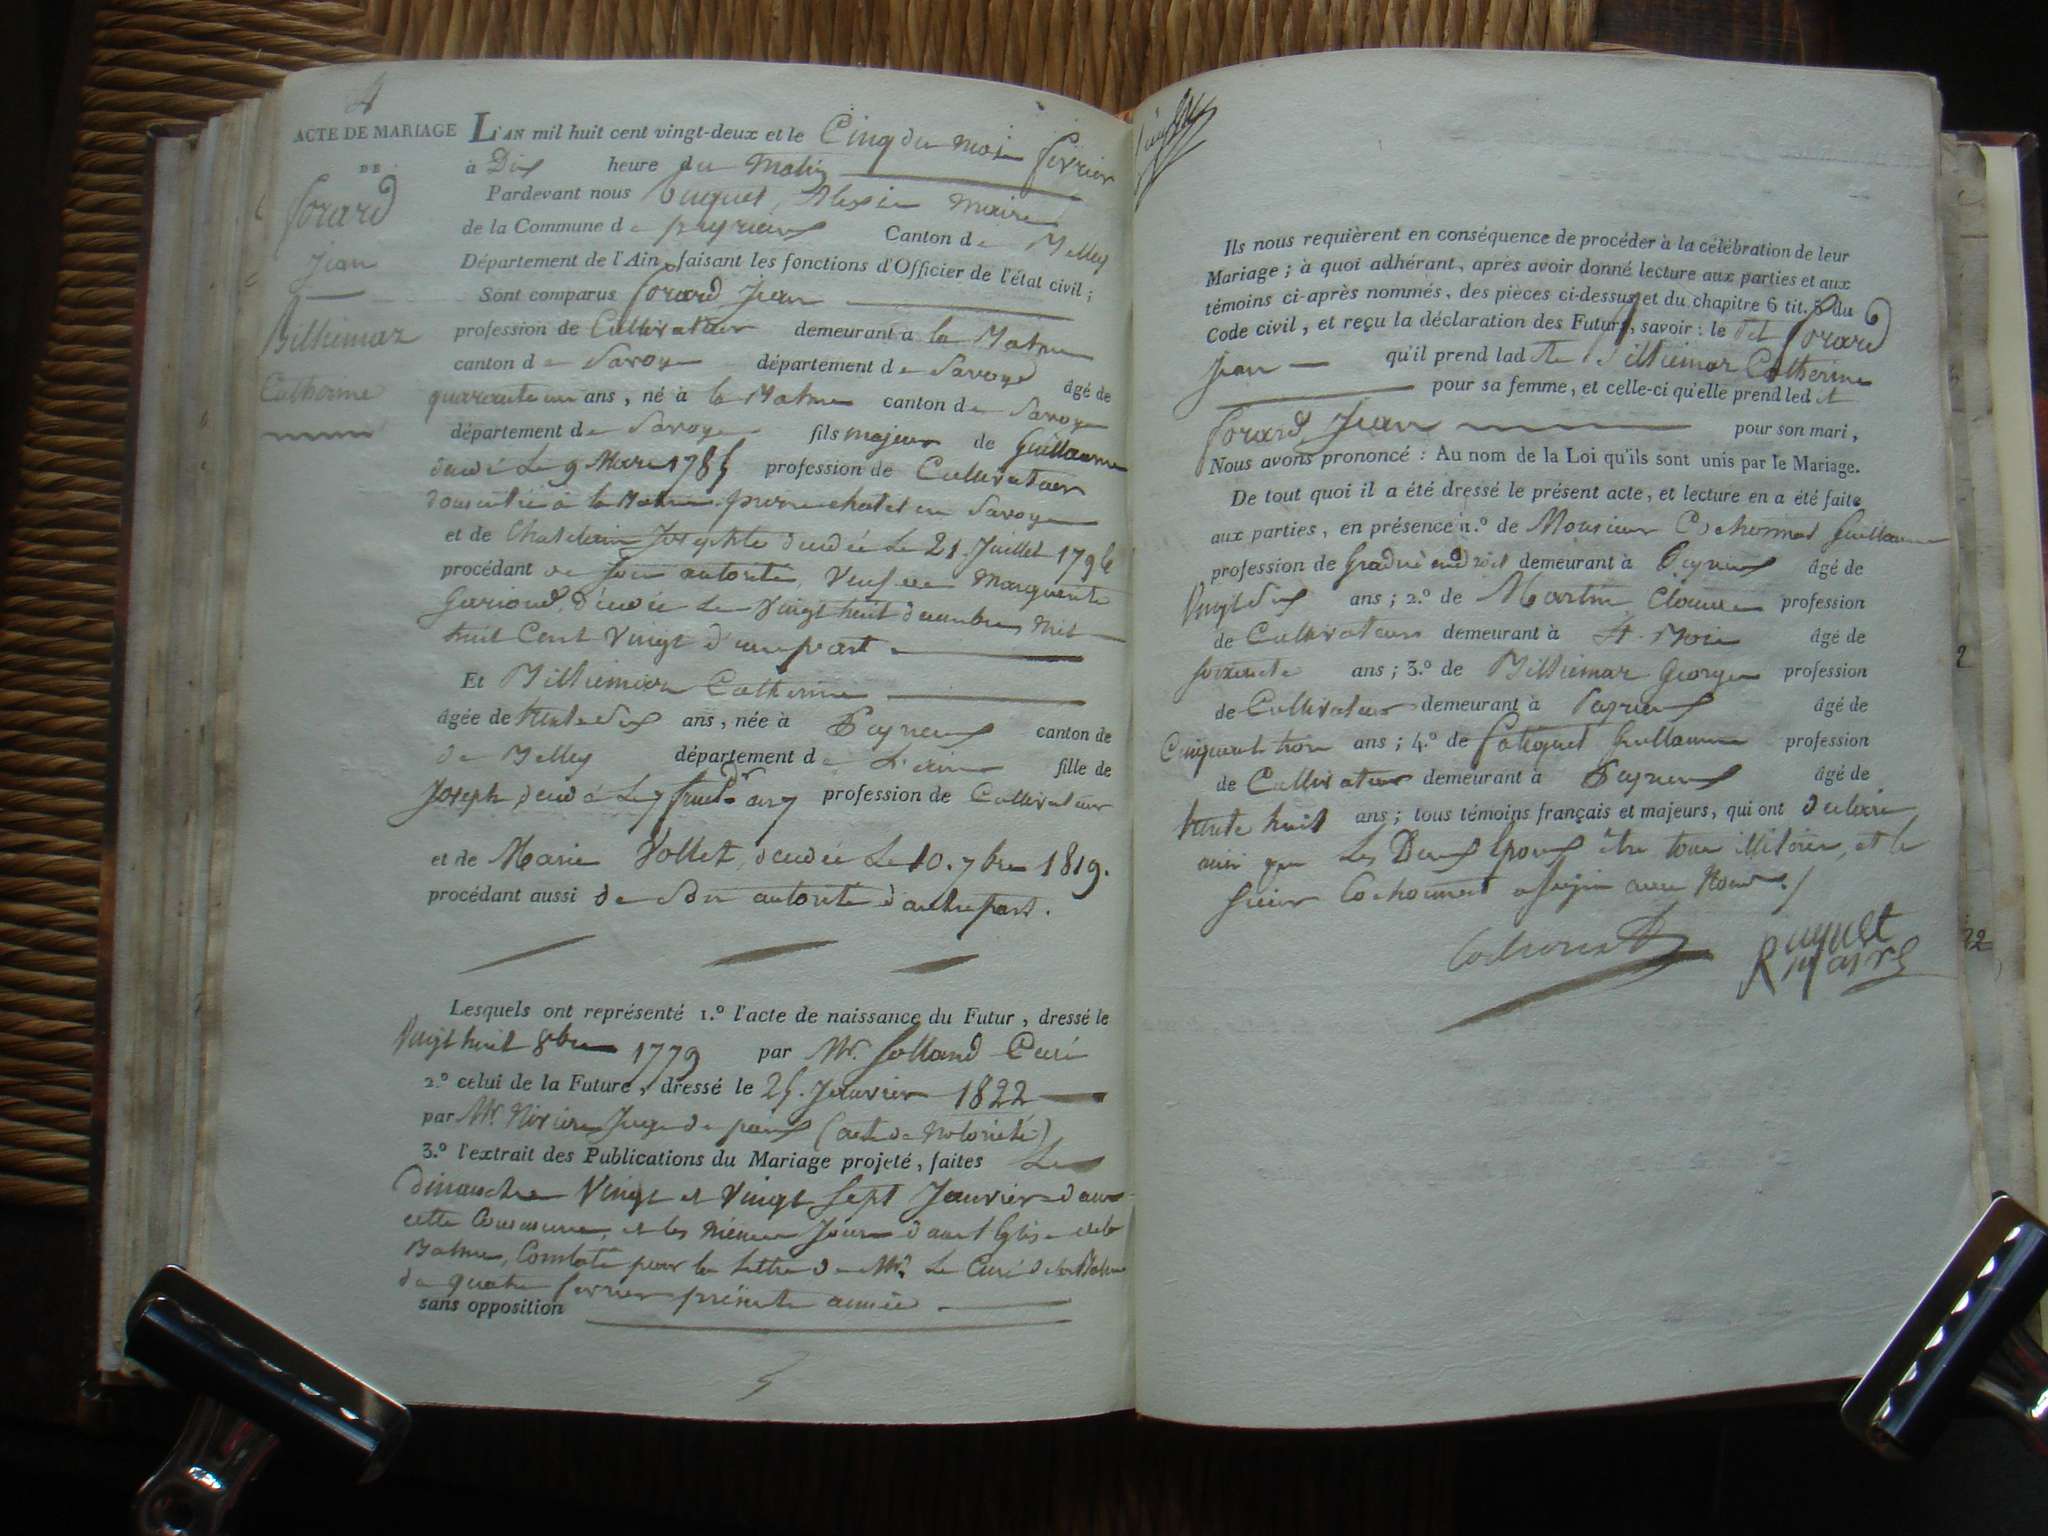 4
ACTE DE MARIAGE
DE
Sorard
Jean
Billiemaz
Catherine
L'AN mil huit cent vingt-deux et le Cinq du mois fevrier
à Dix heure du Matin
Pardevant nous Maire
de la Commune de peyrieux Canton de Belley
Département de l'Ain, faisant les fonctions d'Officier de l'état civil;
Sont comparus Sorard Jean
profession de Cultivateur demeurant à la Balme
canton de Savoye département de Savoye âgé de
quarante un ans, né à la Balme canton de Savoye
département de Savoye fils majeur de Guillaume
décédé Le 9 Mars 1785 profession de Cultivateur
domicilié à la Balme pierre chatel en Savoye
et de Josephte décédée Le 21 Juillet
procédant de son autorité, Veuf de Marguerite
décédée Le Vingt huit decembre Mil
huit Cent Vingt d'une part
Et Billiemaz Catherine
âgée de trente deux ans, née à Peyrieux canton de
de Belley département de L'ain fille de
Joseph décédé Le 7 fruct.dor an 7 profession de Cultivateur
et de Marie Vollet, décédée Le 10. 7bre 1819.
procédant aussi de son autorité d'autre part.
Lesquels ont représenté 1.º l'acte de naissance du Futur, dressé le
Vingt huit 8bre 1779 par Mr. Jolland Curé
2.º celui de la Future, dressé le 25. Janvier 1822
par Mr. Juge de paix (acte de Notoriété)
3.º l'extrait des Publications du Mariage projeté, faites Les
dimanches Vingt et Vingt Sept Janvier dans
cette Commune, et les mêmes Jours dans l'Eglise de la
Balme, Constaté par la lettre de Mr. Le Curé de la Balme
du quatre fevrier présente année
sans opposition
Ils nous requièrent en conséquence de procéder à la célébration de leur
Mariage; à quoi adhérant, après avoir donné lecture aux parties et aux
témoins ci-après nommés, des pièces ci-dessus et du chapitre 6 tit. 5 du
Code civil, et reçu la déclaration des Futurs, savoir: le dit Sorard
Jean qu'il prend ladite Billiemaz Catherine
pour sa femme, et celle-ci qu'elle prend ledit
Sorard, Jean pour son mari,
Nous avons prononcé: Au nom de la Loi qu'ils sont unis par le Mariage.
De tout quoi il a été dressé le présent acte, et lecture en a été faite
aux parties, en présence 1.º de Monsieur Cochonnat Guillaume
profession de Gradué en droit demeurant à Peyrieux âgé de
Vingt dix ans; 2.º de Martin Claude profession
de Cultivateur demeurant à St. Bois âgé de
soixante ans; 3.º de Billiemaz George profession
de Cultivateur demeurant à Peyrieux âgé de
Cinquante trois ans; 4.º de Guillaume profession
de Cultivateur demeurant à Peyrieux âgé de
trente huit ans; tous témoins français et majeurs, qui ont declaré
ainsi que Les Deux Epoux être tous illitérés, et le
sieur Cochonnat a signé avec Nous.
Cochonnat Ruquet
maire